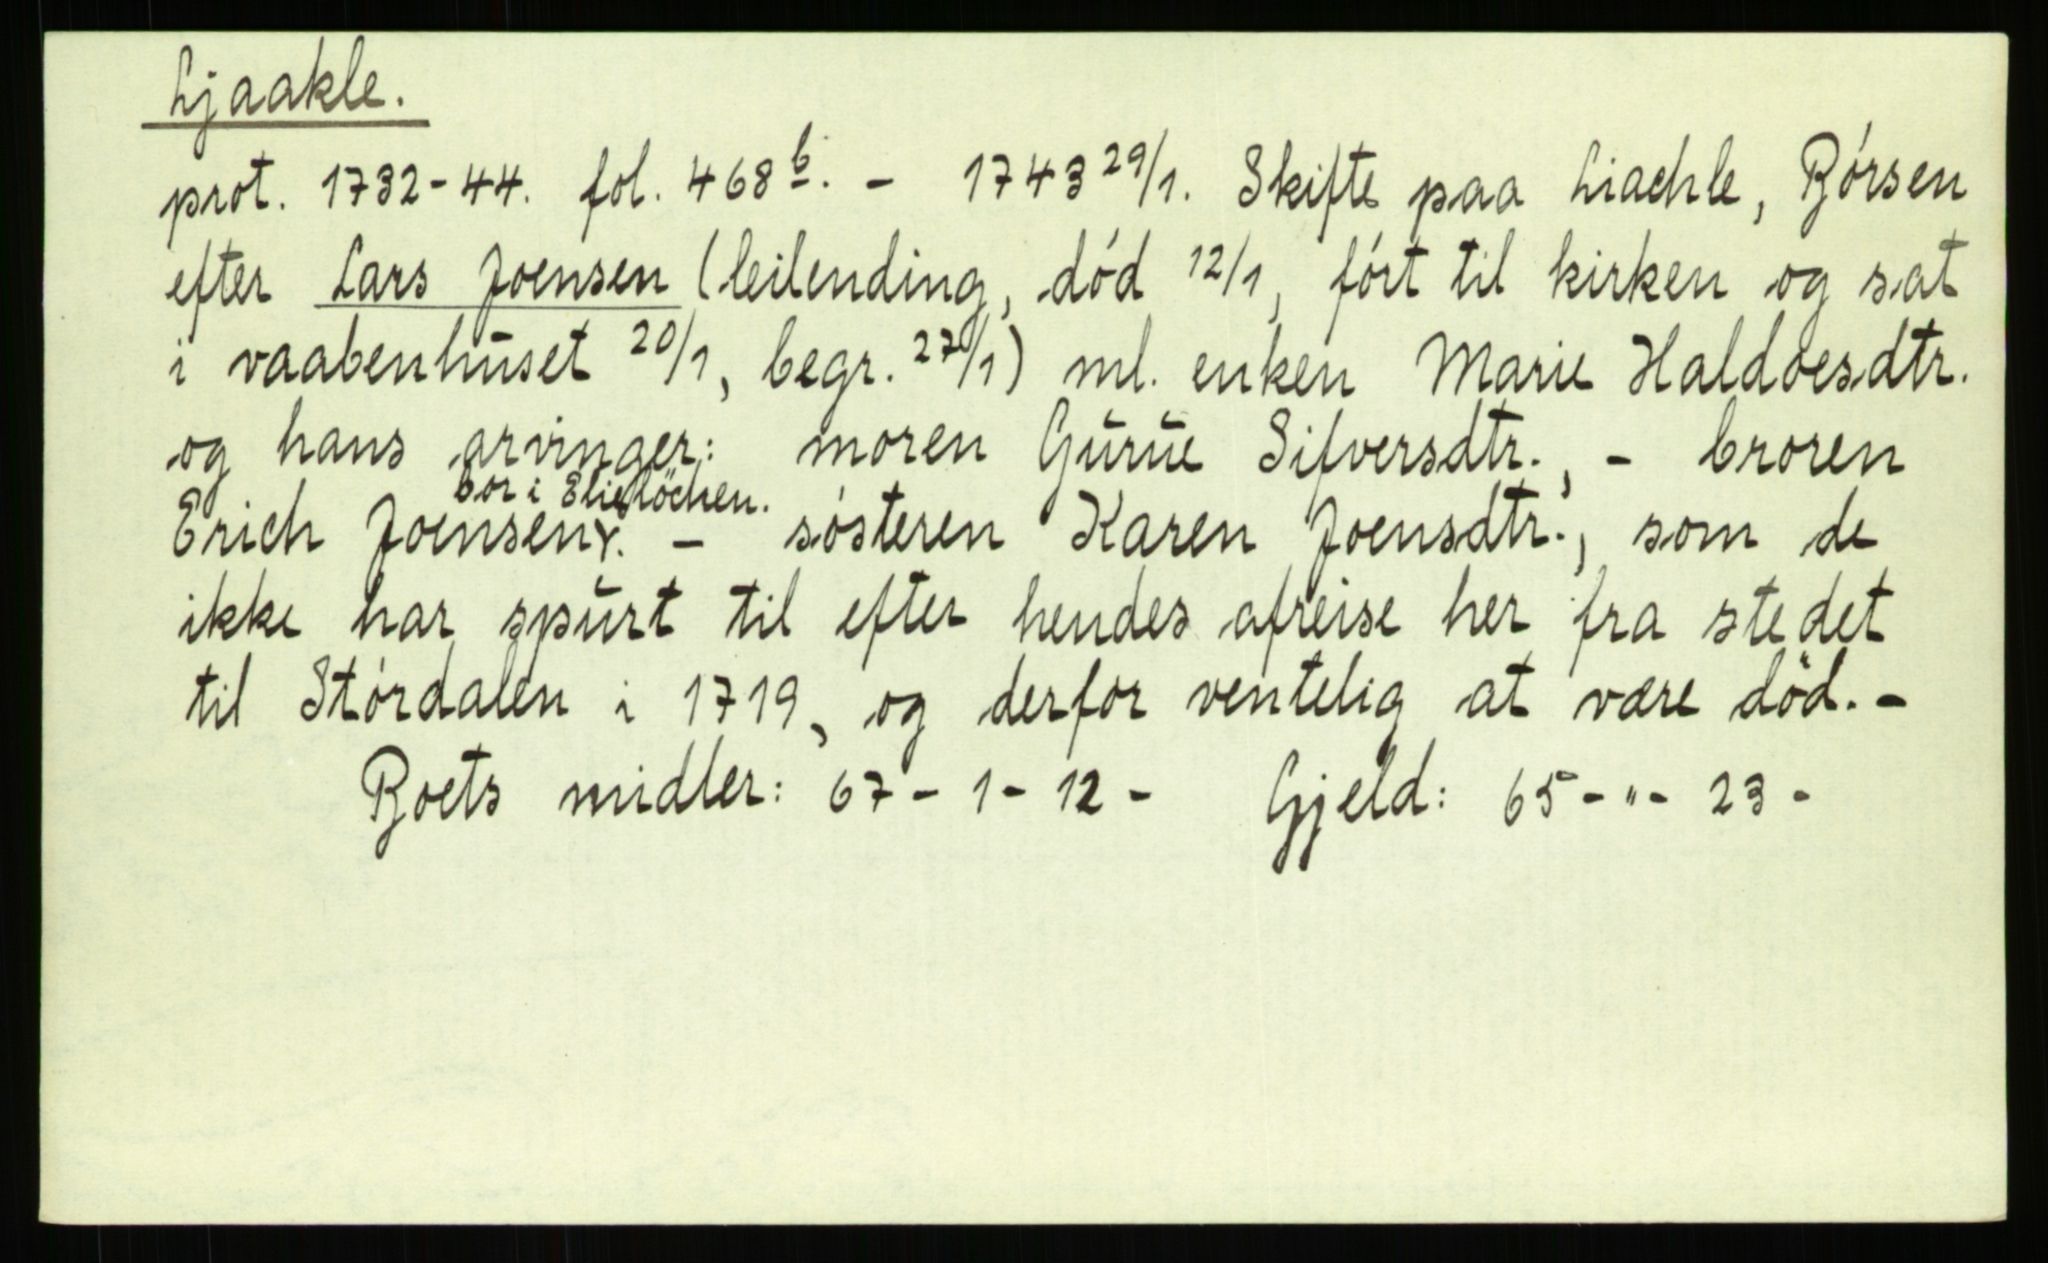 Ljaakle.
prot. 1732-44. fol. 468b. - 1743 29/1. Skifte paa Liachle, Børsen
efter Lars Joensen (leilending, død 12/1, ført til kirken og sat
i vaabenhuset 20/1, begr. 27/1) ml. enken Marie Haldoesdtr.
og hans arvinger: moren Gurue Sifversdtr., - broren
bor i
Erich Joensen. - søsteren Karen Joensdtr., som de
ikke har spurt til efter hendes afreise her fra stedet
til Størdalen i 1719, og derfor ventelig at være død. -
Boets midler: 67 - 1 - 12 - Gjeld: 65 - " - 23 -